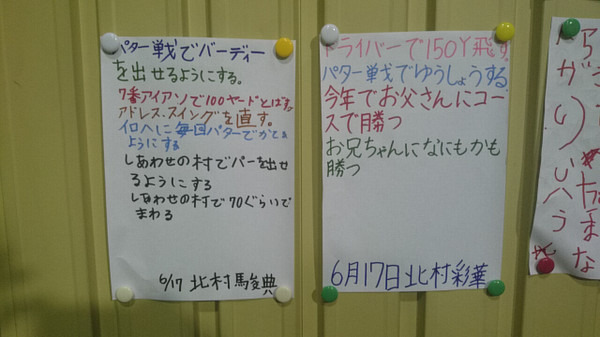 パター戦でバーディー
を出せるようにする。
7番アイアンで100ヤードとばす。
アドレス.スイングを直す。
イロハに毎回パターでかてる
ようにする
しあわせの村でパーを出せ
るようにする
しあわせの村で70ぐらいで
まわる
6/17 北村駿典
ドライバーで150Y飛す。
パター戦でゆうしょうする
今年でお父さんにコー
スで勝つ
お兄ちゃんになにもかも
勝つ
6月17日北村彩華